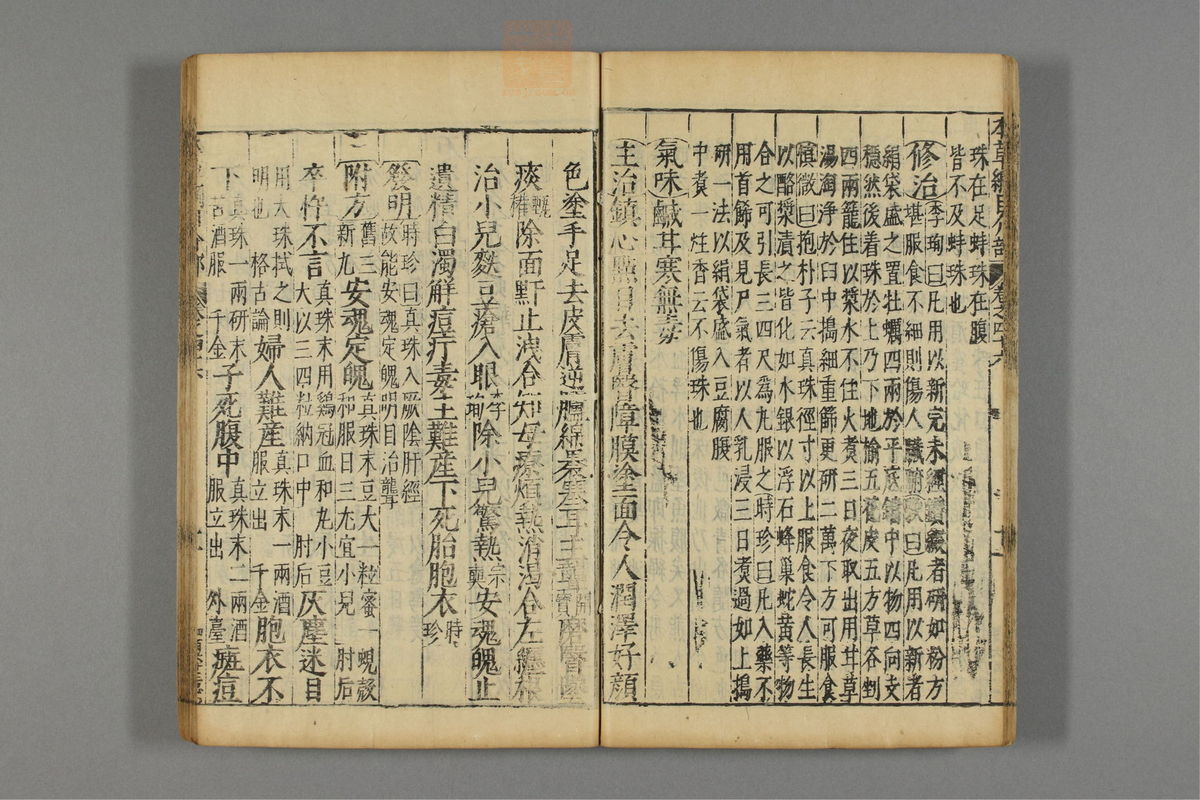 本草綱目介部 卷之四十六
珠在足蚌珠在腹
皆不及蚌珠也
修治李珣曰凡用以新完未經鑽綴者研如粉方堪服食不細則傷人臟腑斅曰凡用以新者
絹袋盛之置牡蠣四兩於平底鐺中以物四向支
穩然後着珠於上乃下地榆五花皮五方草各剉
四兩籠住以漿水不住火煮三日夜取出用甘草
湯淘淨於臼中搗細重篩更研二萬下方可服食
慎微曰抱朴子云真珠徑寸以上服食令人長生
以酪漿漬之皆化如水銀以浮石蜂巢蛇黃等物
合之可引長三四尺爲丸服之時珍曰凡入藥不
用首飾及見尸氣者以人乳浸三日煮過如上搗
研一法以絹袋盛入豆腐腹
中煮一炷香云不傷珠也
氣味鹹甘寒無毒
主治鎮心點目去膚瞖障膜塗面令人潤澤好顏
色塗手足去皮膚逆臚綿裹塞耳主聾開寶磨瞖墜
痰甄權除面䵟止洩合知母療煩熱消渴合左纏根
治小兒麩豆瘡入眼李珣除小兒驚熱宗奭安魂魄止
遺精白濁解痘疔毒主難産下死胎胞衣時珍
發明時珍曰真珠入厥陰肝經故能安魂定魄明目治聾
附方舊三新九安魂定魄真珠末豆大一粒蜜一蜆殼和服日三尢宜小兒肘后
卒忤不言真珠末用鷄冠血和丸小豆大以三四粒納口中肘后灰塵迷目
用大珠拭之則明也格古論婦人難産真珠末一兩酒服立出千金胞衣不
下真珠一兩研末苦酒服千金子死腹中真珠末二兩酒服立出外臺癍痘